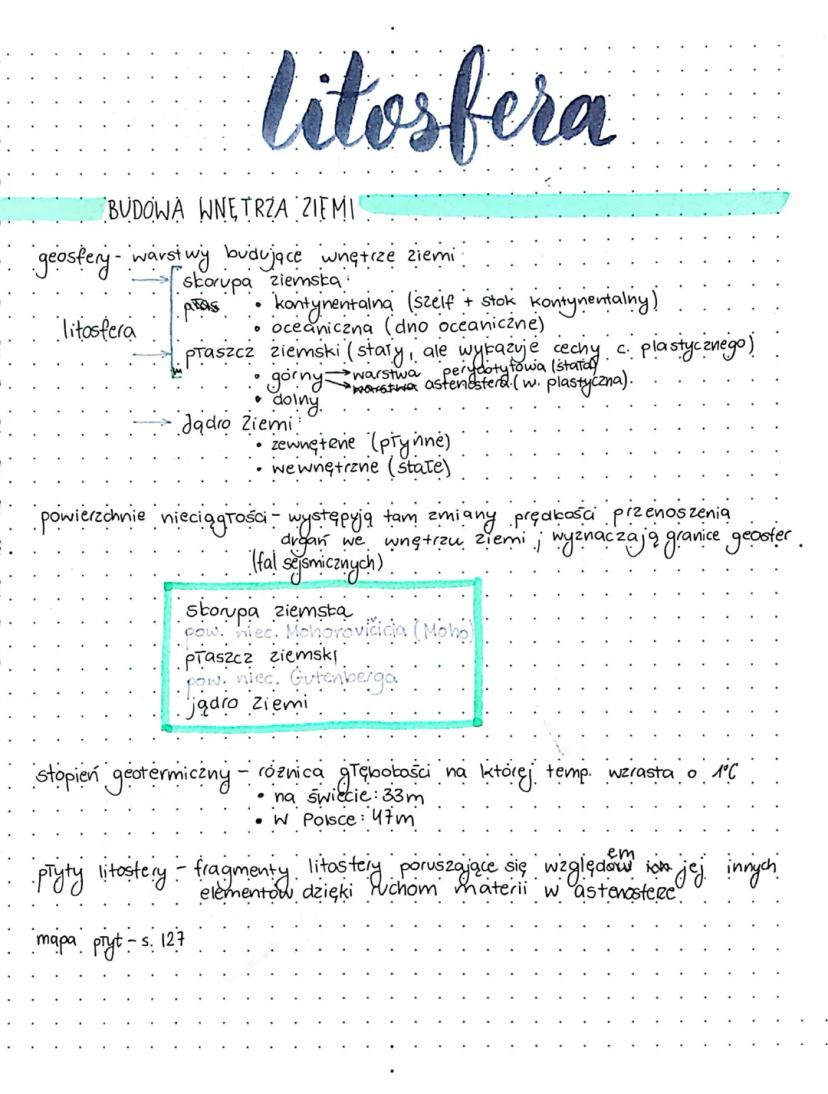 litosfera
BUDOWA WNĘTRZA ZIEMI
geosfery - warstwy budujące wnętrze ziemi:
→ skorupa ziemska:
• kontynentalna (szelf + stok kontynentalny)
• oceaniczna (dno oceaniczne)
litosfera
→ płaszcz ziemski (stały, ale wykazuje cechy c. plastycznego)
• górny → warstwa perydotytowa (stała)
→ astenosfera (w. plastyczna)
• dolny
→ Jądro Ziemi:
• zewnętrzne (płynne)
• wewnętrzne (stałe)
powierzchnie nieciągłości - występują tam zmiany prędkości przenoszenia
drgań we wnętrzu ziemi; wyznaczają granice geosfer.
(fal sejsmicznych)
skorupa ziemska
pow. niec. Mohorovičicia (Moho)
płaszcz ziemski
pow. niec. Gutenberga
jądro Ziemi
stopień geotermiczny - różnica głębokości na której temp. wzrasta o 1°C
• na świecie: 33m
• w Polsce: 47m
płyty litosfery - fragmenty litosfery poruszające się względem jej innych
elementów dzięki ruchom materii w astenosferze
mapa płyt - s. 127